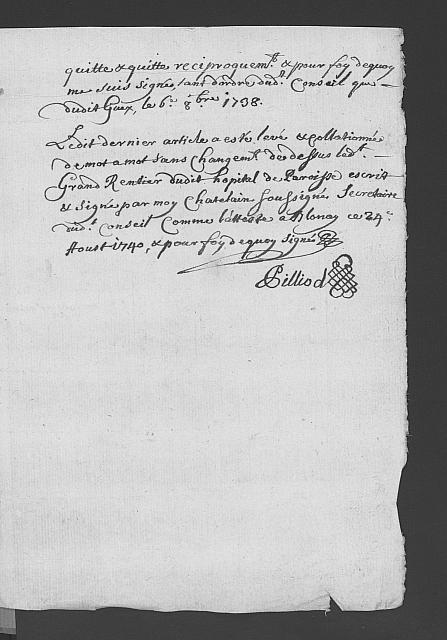 quitte & quitte reciproquemt. & pour foy dequoy
me suis signé, tant d'ordre dudt. Conseil que
dudit Goux, le 6e. 8bre 1738.
Ledit dernier article a esté levé & collationné
de mot a mot sans changemt. de dessus ledt.
Grand Rentier dudit hôpital de Paroisse escrit
& signé par moy Chatelain soussigné Secretaire
dudt. Conseil comme l'atteste a Blonay ce 24e.
Aoust 1740, & pour foy dequoy signé
Pilliod